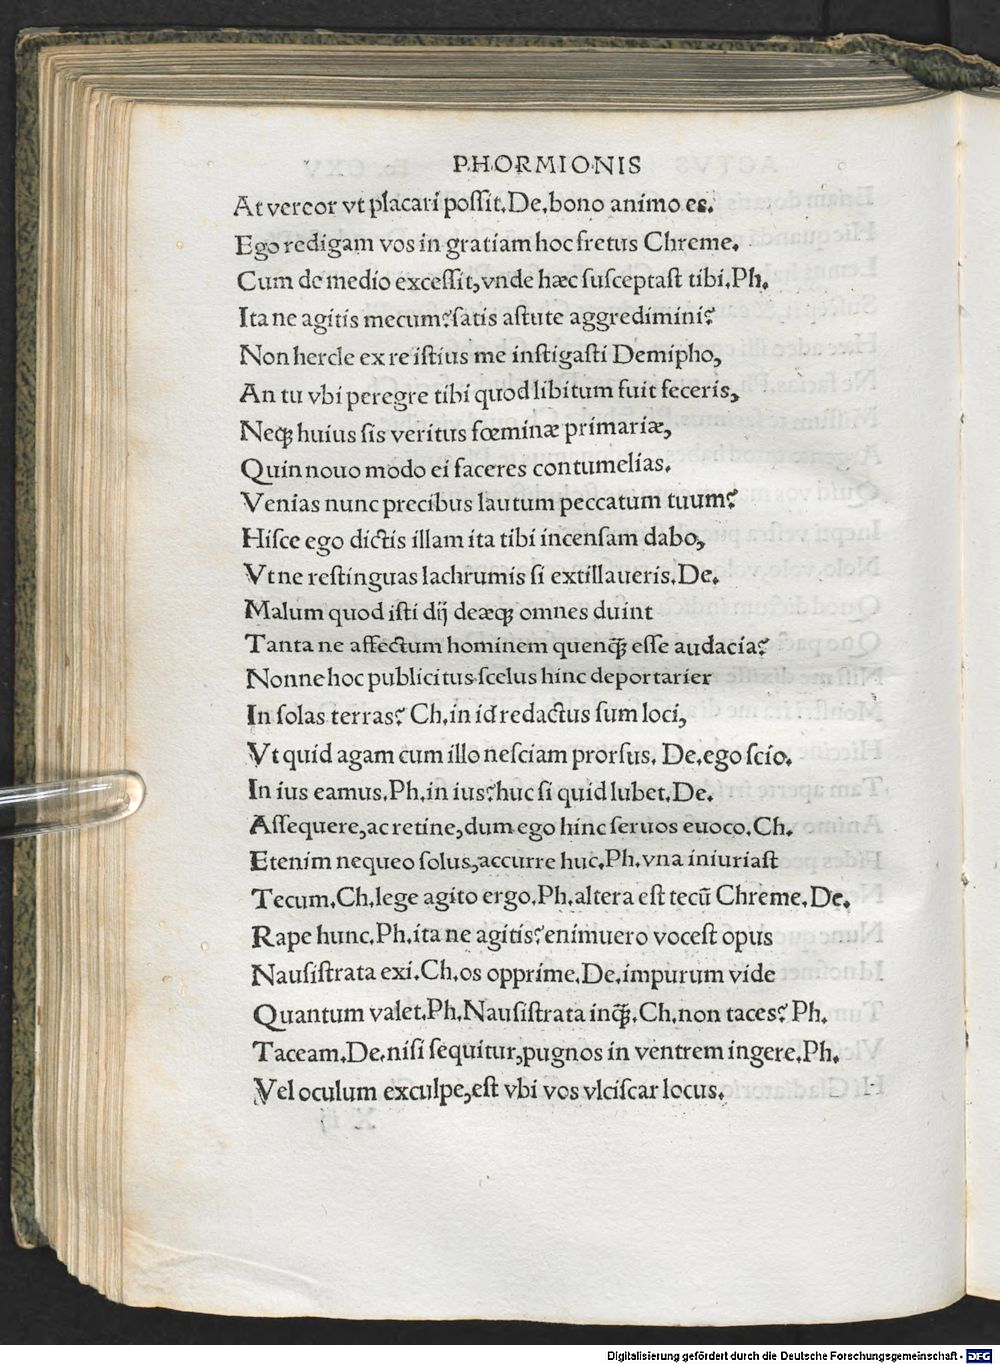 PHORMIONIS
At vereor vt placari poſſit. De. bono animo es.
Ego redigam vos in gratiam hoc fretus Chreme.
Cum de medio exceſſit, vnde hæc ſuſceptaſt tibi. Ph.
Ita ne agitis mecum? ſatis aſtute aggredimini?
Non hercle ex re iſtius me inſtigaſti Demipho,
An tu vbi peregre tibi quod libitum fuit feceris,
Neqꝫ huius ſis veritus fœminæ primariæ,
Quin nouo modo ei faceres contumelias.
Venias nunc precibus lautum peccatum tuum?
Hiſce ego dictis illam ita tibi incenſam dabo,
Vt ne reſtinguas lachrumis ſi extillaueris. De.
Malum quod iſti dij deæqꝫ omnes duint
Tanta ne affectum hominem quenqꝫ̃ eſſe audacia?
Nonne hoc publicitus ſcelus hinc deportarier
In ſolas terras? Ch. in id redactus ſum loci,
Vt quid agam cum illo neſciam prorſus. De. ego ſcio.
In ius eamus. Ph. in ius? huc ſi quid lubet. De.
Aſſequere, ac retine, dum ego hinc ſeruos euoco. Ch.
Etenim nequeo ſolus, accurre huc. Ph. vna iniuriaſt
Tecum. Ch. lege agito ergo. Ph. altera eſt tecũ Chreme. De.
Rape hunc. Ph. ita ne agitis? enimuero voceſt opus
Nauſiſtrata exi. Ch. os opprime. De. impurum vide
Quantum valet. Ph. Nauſiſtrata inqꝫ̃. Ch. non taces? Ph.
Taceam. De. niſi ſequitur, pugnos in ventrem ingere. Ph.
Vel oculum exculpe, eſt vbi vos vlciſcar locus.
Digitalisierung gefördert durch die Deutsche Forschungsgemeinschaft - DFG